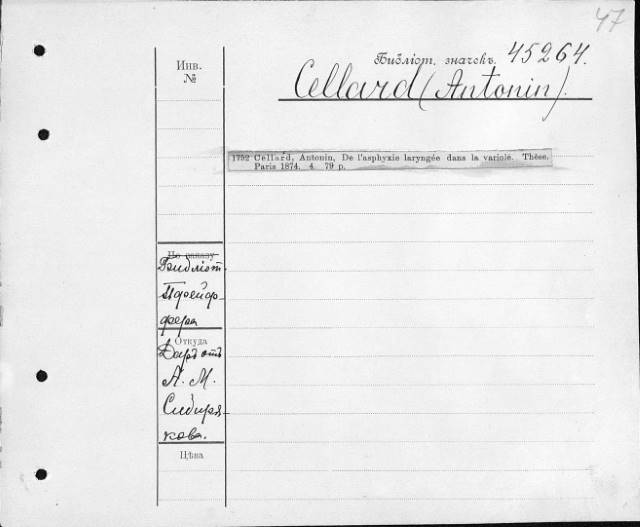 47
Инв.
№
Библіот. значекъ. 45264.
Cellard (Antonin).
1752 Cellard, Antonin, De l'asphyxie laryngée dans la variole. Thèse.
Paris 1874. 4. 79 p.
По заказу
Библіот.
Пфейф-
фера
Откуда
Даръ отъ
А. М.
Сибиря-
кова.
Цѣна